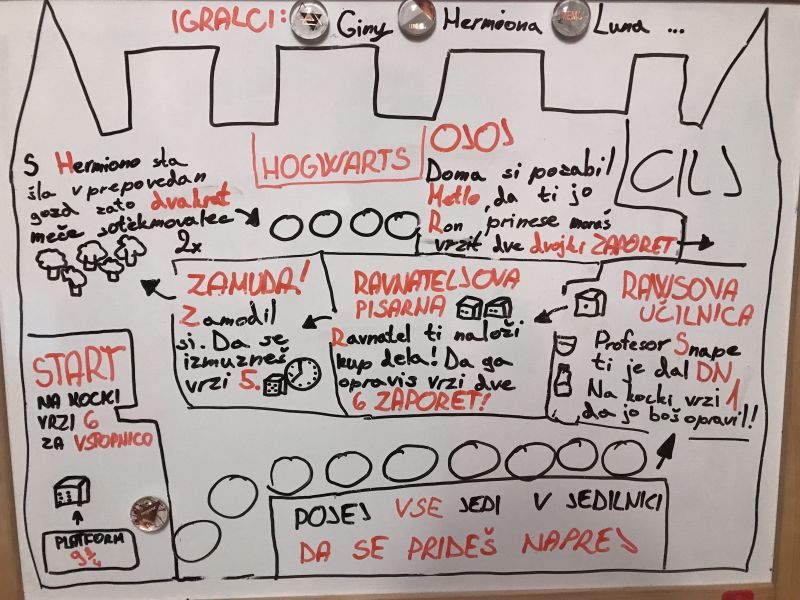 IGRALCI: Giny Hermiona Luna ...
HOGWARTS
S Hermiono sta
šla v prepovedan
gozd zato dvakrat
meče sotekmovalec
2x
OJOJ
Doma si pozabil
Metlo, da ti jo
Ron prinese moraš
vrzit dve dvojki ZAPORET
CILJ
ZAMUDA!
Zamudil
si. Da se
izmuzneš
vrzi 5.
RAVNATELJOVA
PISARNA
Ravnatel ti naloži
kup dela! Da ga
opravis vrzi dve
6 ZAPORET!
RAWSOVA
UČILNICA
Profesor Snape
ti je dal DN
Na kocki vrzi 1
da jo boš opravil!
START
NA KOCKI
VRZI 6
ZA VSTOPNICO
PLATFORM
9 3/4
POJEJ VSE JEDI V JEDILNICI
DA SE PRIDEŠ NAPREJ